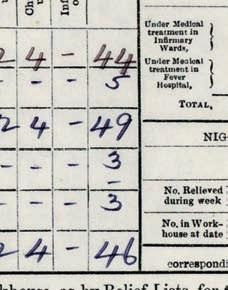 Under Medical
treatment in
Infirmary
Wards,
Under Medical
treatment in
Fever
Hospital,
TOTAL,
NIG
No. Relieved
during week
No. in Work-
house at date
correspondi
2 4 - 44
- - - 5
2 4 - 49
- - - 3
-
- - - 3
2 4 - 46
as by Relief Lists, for